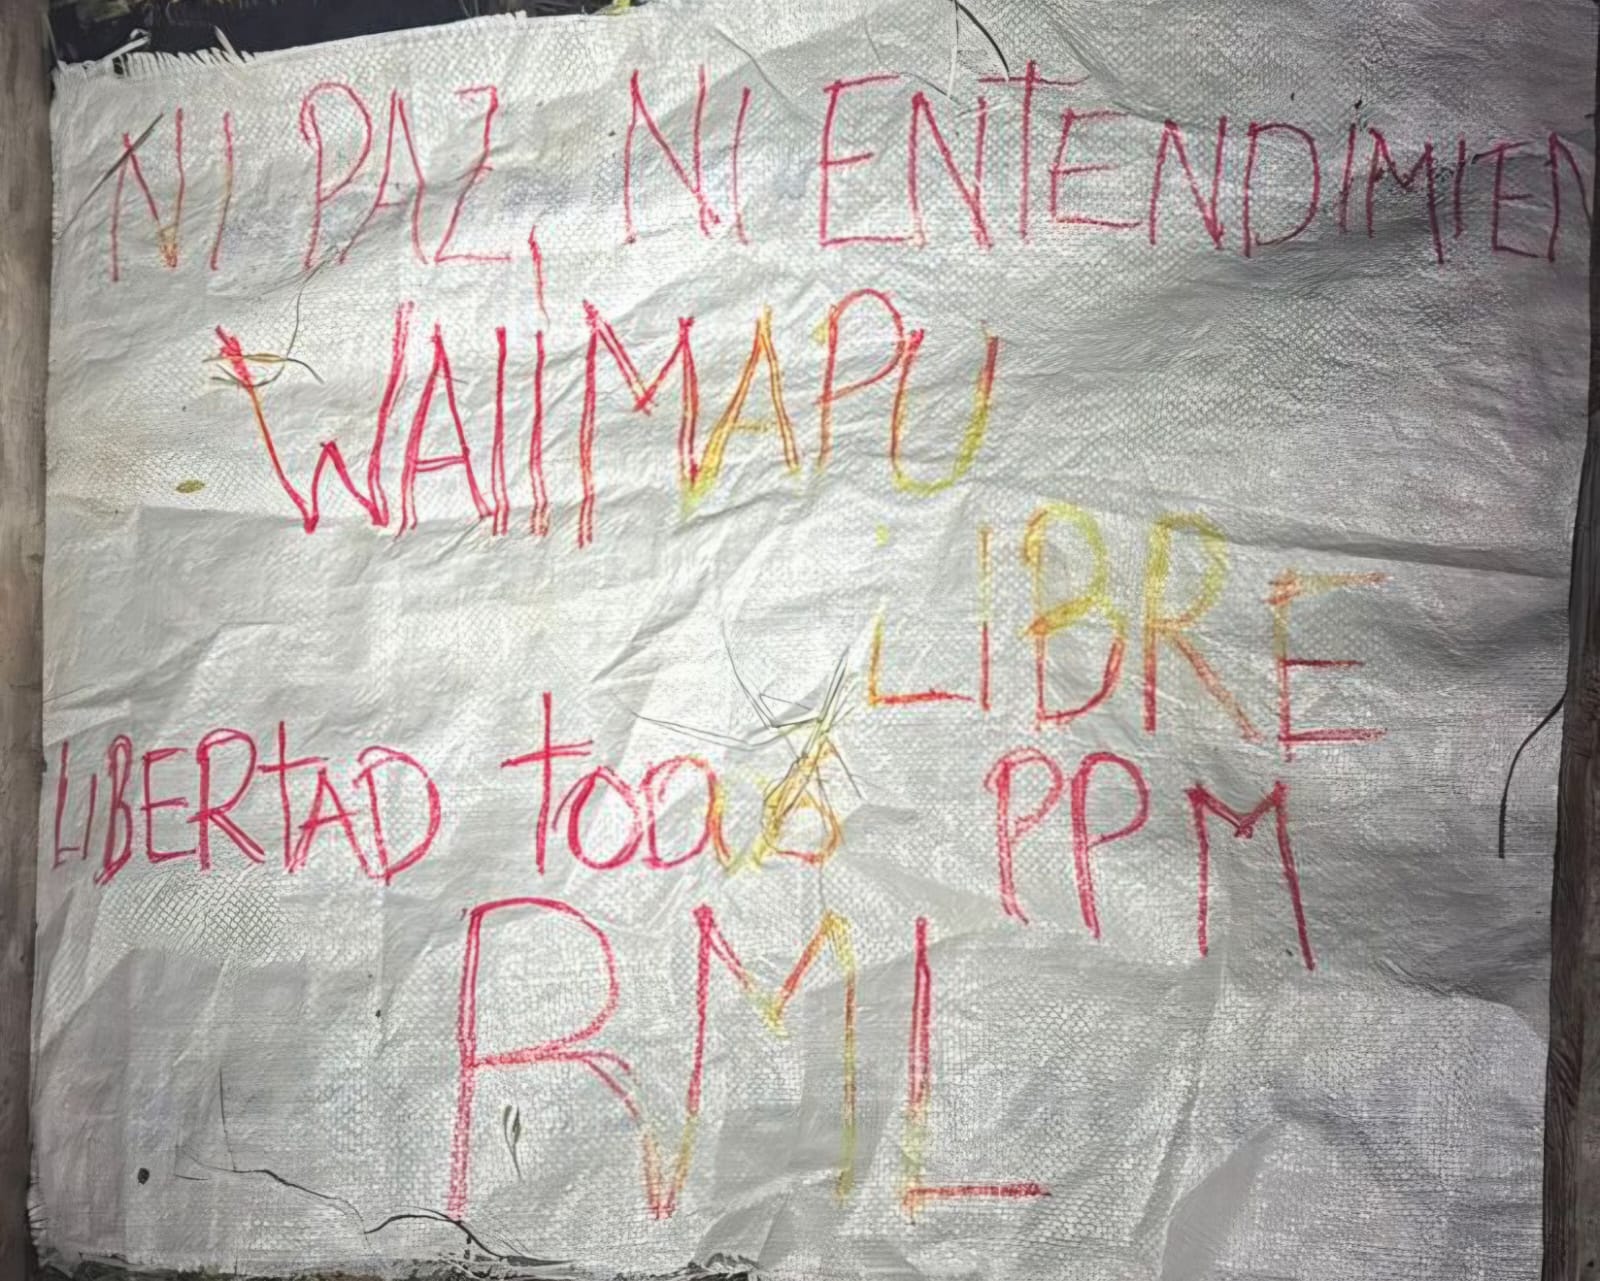 NI PAZ, NI ENTENDIMIEN
WAllMAPU
LIBRE
LIBERtAD todos PPM
RML